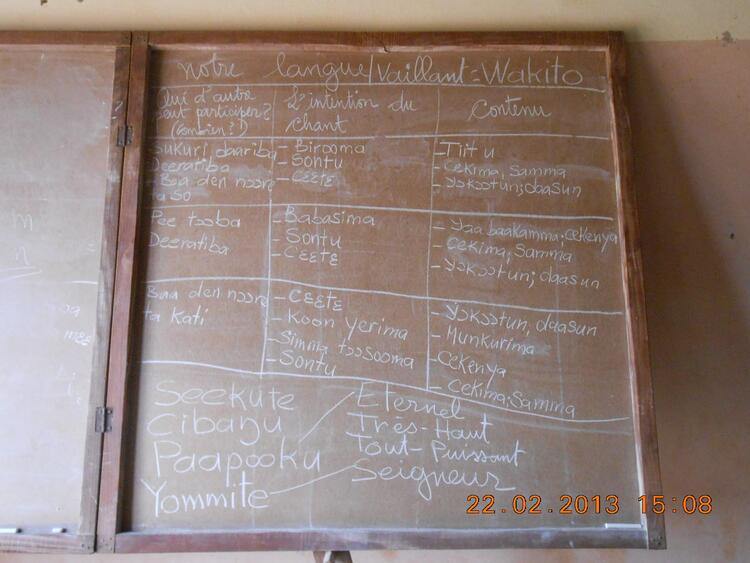 notre langue/Vaillant = Wakito
Qui d'autre
peut participer?
(combien?)
L'intention du
chant
Contenu
Sukuri, daariba
Deeratiba
- Baa den nɔɔrɛ
ta so
- Birooma
- Sontu
- Cɛɛtɛ
- Tiitu
- Cekima, Samma
- Yɔkɔɔtun; daasun
Pee tɔɔba
Deeratiba
- Babasima
- Sontu
- Cɛɛtɛ
- Yaa baakamma; cekenya
- Cekima, Samma
- Yɔkɔɔtun; daasun
Baa den nɔɔrɛ
ta kati
- Cɛɛtɛ
- Koon yerima
- Simma tɔɔsooma
- Sontu
- Yɔkɔɔtun, daasun
- Munkurima
- Cekenya
- Cekima; Samma
Seekute
Cibaŋu
Paapooku
Yommite
Eternel
Très-Haut
Tout-Puissant
Seigneur
m
n
22.02.2013 15:08